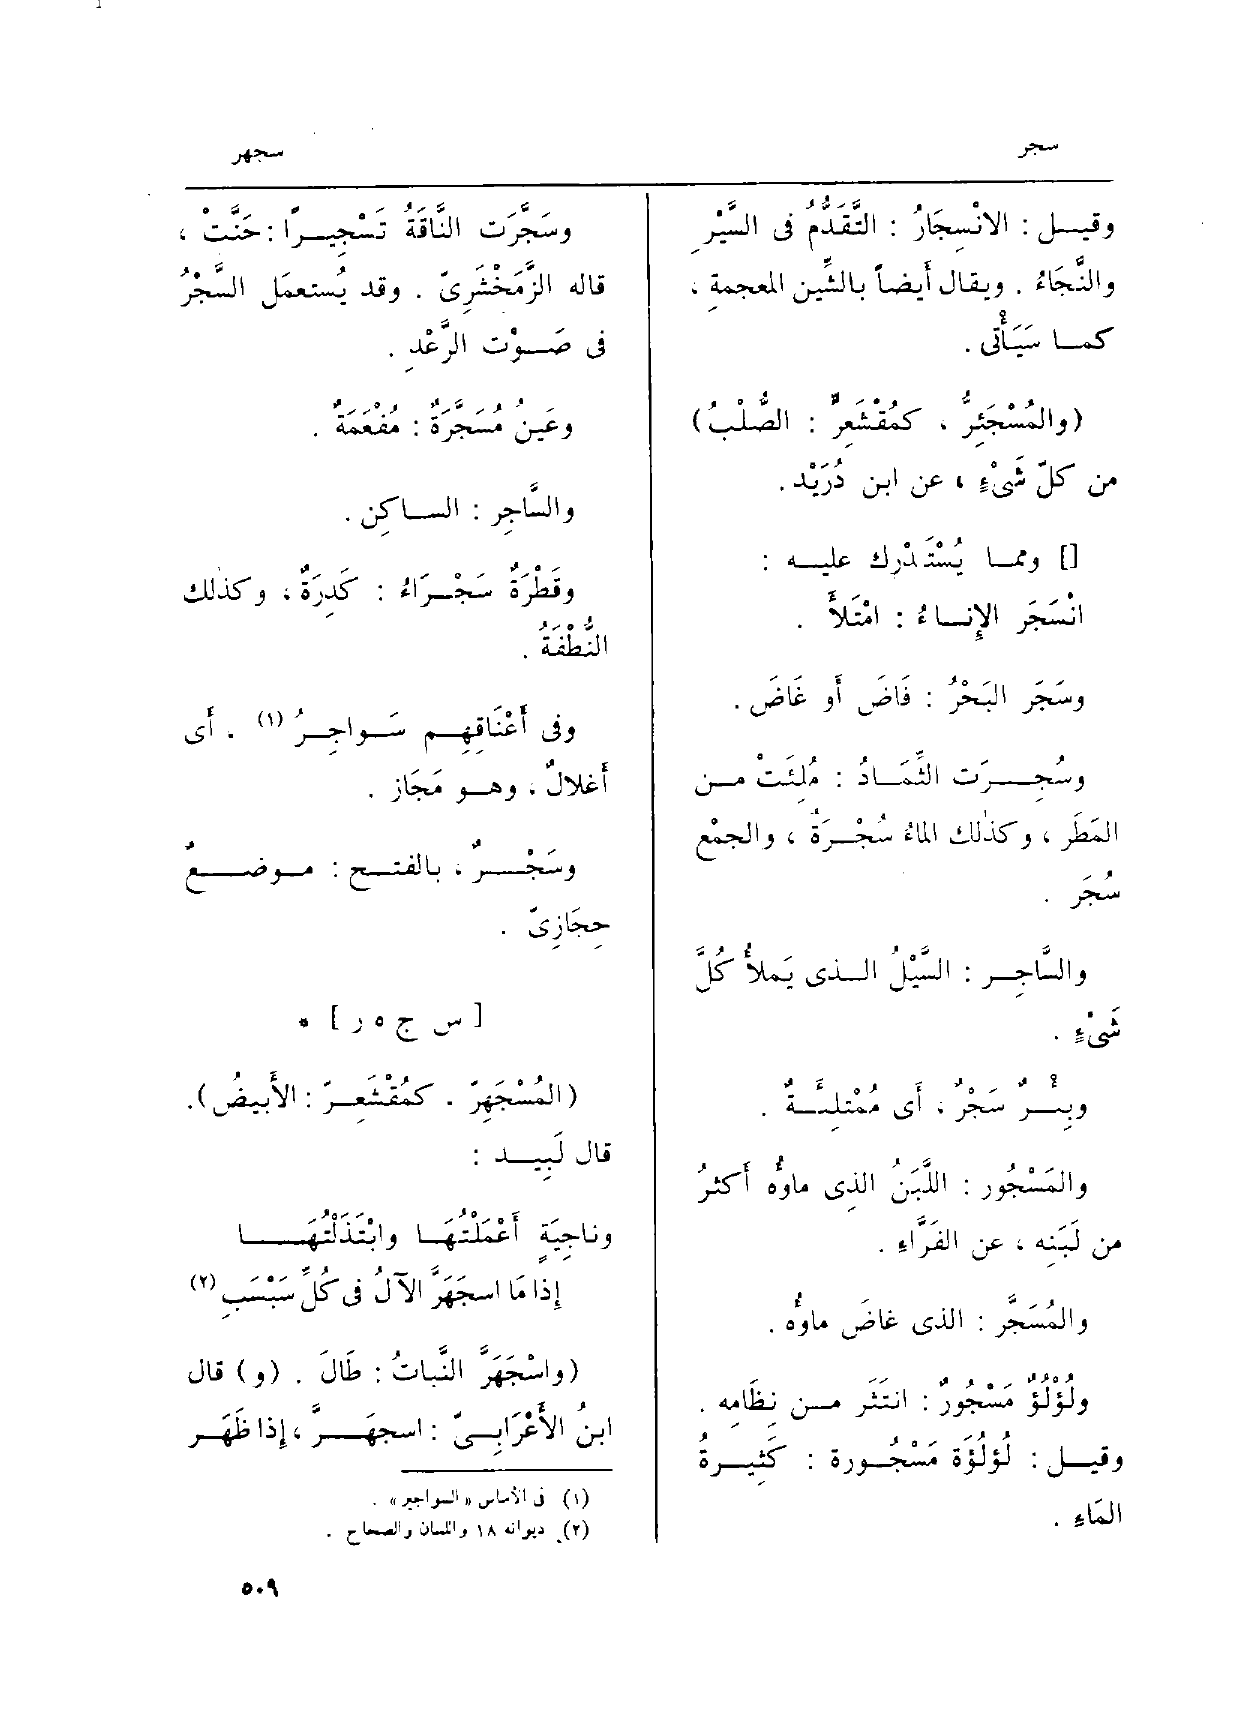 سجر
سجهر
وقيـل : الانْسِجَارُ : التَّقَدُّمُ فى السَّيْرِ
والنَّجَاءُ . ويقال أيضاً بالشِّين المعجمةِ ،
كمـا سَيَأْتى .
(والمُسْجَئِرُّ ، كمُقْشَعِرٍّ : الصُّلْبُ)
من كلّ شَىْءٍ ، عن ابن دُرَيْد .
[] وممـا يُسْتَدْرك عليـه :
انْسَجَر الإِنـاءُ : امْتَلأَ .
وسَجَر البَحْرُ : فَاضَ أَو غَاضَ .
وسُجِـرَت الثِّمَـادُ : مُلِئَتْ مـن
المَطَر ، وكذٰلك الماءُ سُجْـرَةٌ ، والجمْع
سُجَر .
والسَّاجِـر : السَّيْلُ الـذى يَملأُ كُلَّ
شَىْءٍ .
وبِئْـرٌ سَجْرٌ ، أَى مُمْتلِئَـةٌ .
والمَسْجُور : اللَّبَنُ الذى ماوُّه أَكثرُ
من لَبَنِه ، عن الفَرَّاءِ .
والمُسَجَّر : الذى غاضَ ماوُّه .
ولُؤْلُؤٌ مَسْجُورٌ : انتَثَر مـن نِظَامِه .
وقيـل : لُؤلُؤَة مَسْجُـورة : كَثِيـرةُ
المَاءِ .
وسَجَّرَت النَّاقَةُ تَسْجِيـرًا : حَنَّتْ ،
قاله الزَّمَخْشَرِىّ . وقد يُستعمَل السَّجْرُ
فى صَـوْت الرَّعْدِ .
وعَينٌ مُسَجَّرَةٌ : مُفْعَمَةٌ .
والسَّاجِر : السـاكِن .
وقَطْرَةٌ سَجْـرَاءُ : كَدِرَةٌ ، وكذلك
النُّطْفَةُ .
وفى أَعْنَاقِهِـم سَـواجِـرُ (١) . أَى
أَغلالٌ ، وهـو مَجَاز .
وسَجْـرٌ ، بالفتـح : مـوضـعٌ
حِجَازِىّ .
[ س ج ه ر ] *
(المُسْجَهِرّ . كمُقْشَعِـرّ : الأَبيضُ) .
قال لَبِيـد :
وناجِيَةٍ أَعْمَلْتُهَـا وابْتَذَلْتُهَـا
إذا مَا اسجَهَرَّ الآلُ فى كُلِّ سَبْسَبِ (٢)
(واسْجَهَرَّ النَّباتُ : طَالَ . (و) قال
ابنُ الأَعْرَابِـىّ : اسجهَـرَّ ، إذا ظَهَـر
(١) فى الأساس « السواجير » .
(٢) ديوانه ١٨ واللسان والصحاح .
٥٠٩